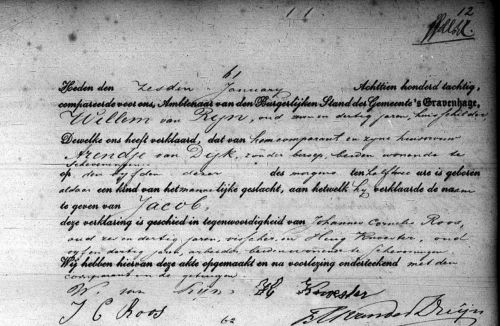 12
61
Heden den zesden January Achttien honderd tachtig,
compareerde voor ons, Ambtenaar van den Burgerlijken Stand der Gemeente 's Gravenhage,
Willem van Rijn, oud een en dertig jaren, huisschilder
Dewelke ons heeft verklaard, dat van hem comparant en zyne huisvrouw
Arendje van Dijk, zonder beroep, beiden wonende te
Scheveningen
op den vyfden dezer des morgens ten half twee ure is geboren
aldaar een kind van het mannelijke geslacht, aan hetwelk hij verklaarde de naam
te geven van Jacob.
deze verklaring is geschied in tegenwoordigheid van Johannes Cornelis Roos,
oud zes en dertig jaren, visscher, en Huig Kwester, oud
vyf en dertig jaren, beiden wonende te Scheveningen.
Wij hebben hiervan deze akte opgemaakt en na voorlezing onderteekend met den
comparant en de getuigen.
W. van Rijn H Kwester
J C Roos
62